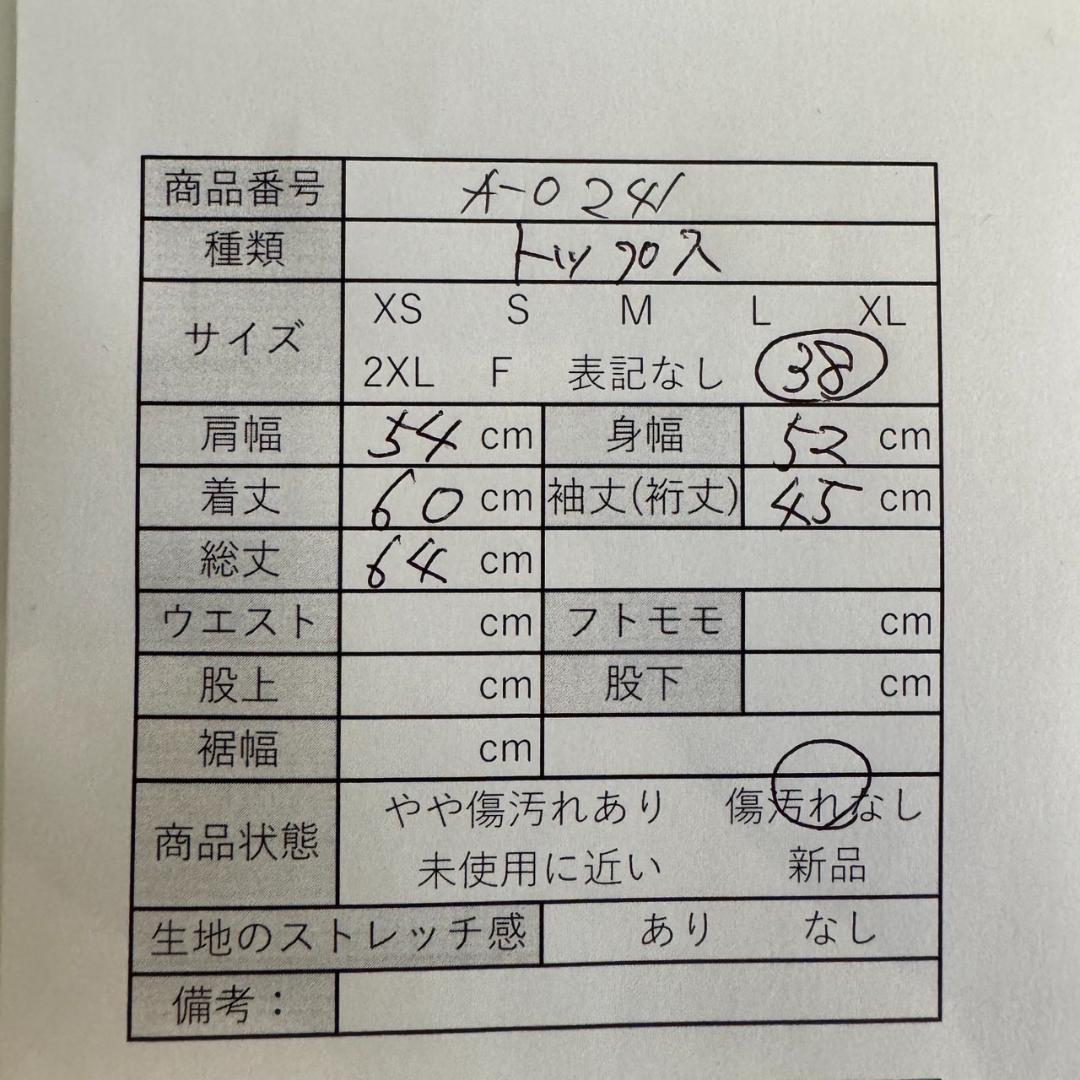 商品番号 A-0241
種類 トップス
サイズ XS S M L XL
2XL F 表記なし 38
肩幅 54 cm 身幅 52 cm
着丈 60 cm 袖丈(裄丈) 45 cm
総丈 64 cm
ウエスト cm フトモモ cm
股上 cm 股下 cm
裾幅 cm
商品状態 やや傷汚れあり 傷汚れなし
未使用に近い 新品
生地のストレッチ感 あり なし
備考：